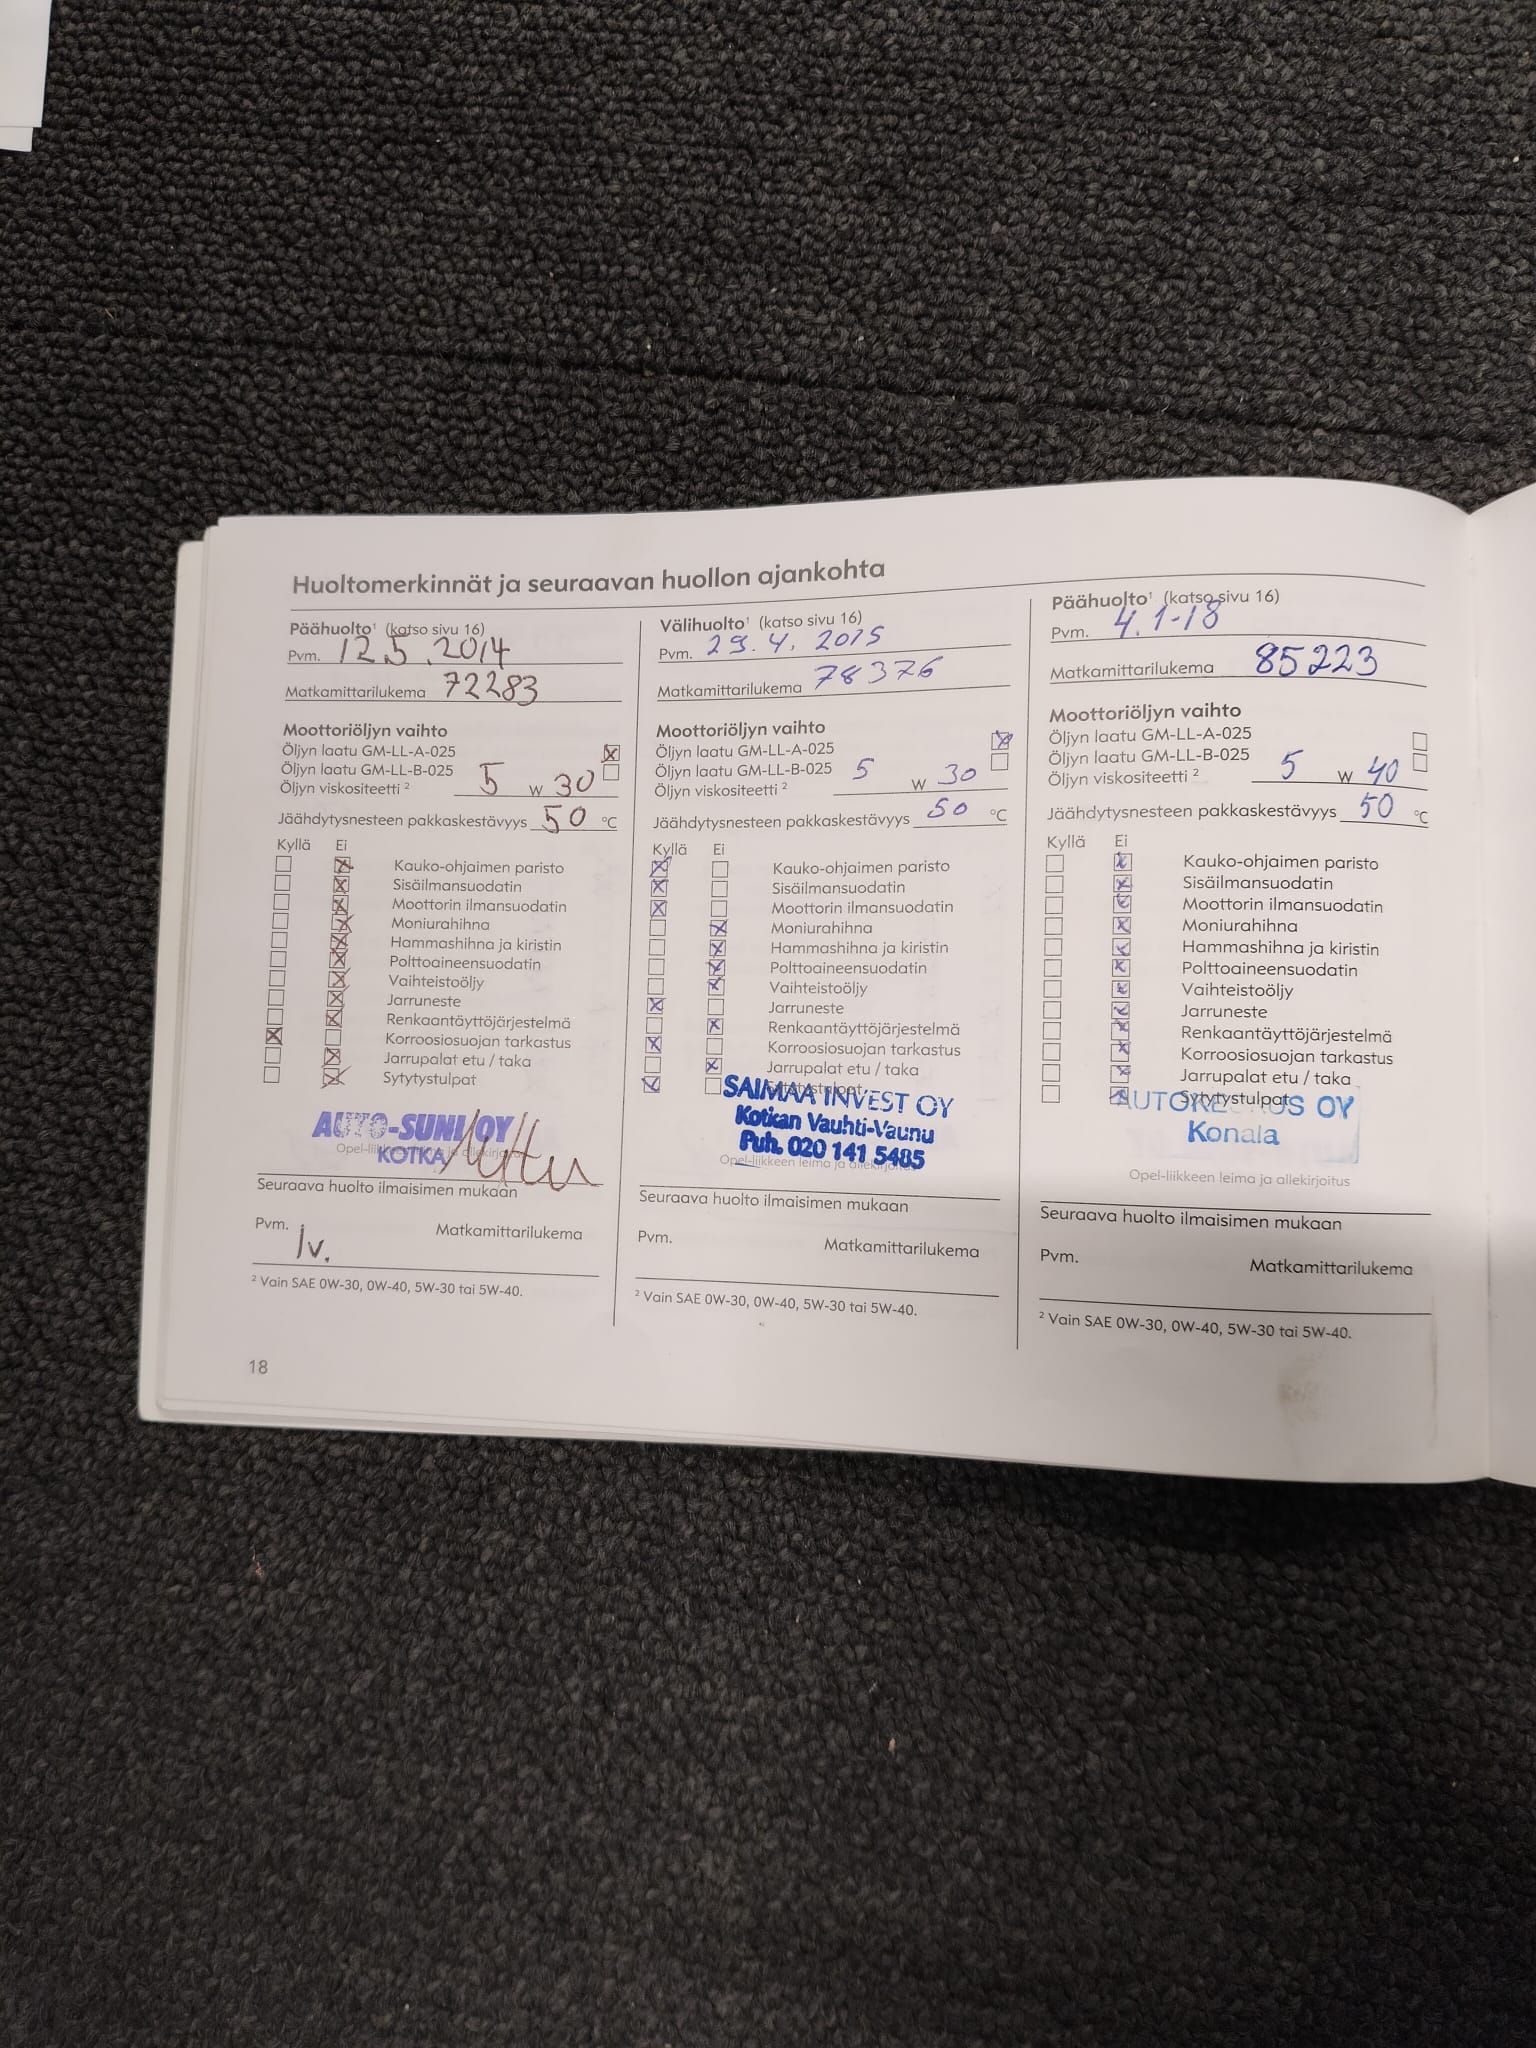 Huoltomerkinnät ja seuraavan huollon ajankohta
Päähuolto¹ (katso sivu 16)
Pvm. 12.5.2014
Matkamittarilukema 72283
Moottoriöljyn vaihto
Öljyn laatu GM-LL-A-025
Öljyn laatu GM-LL-B-025
Öljyn viskositeetti ² 5 W 30
Jäähdytysnesteen pakkaskestävyys 50 °C
Kyllä Ei
Kauko-ohjaimen paristo
Sisäilmansuodatin
Moottorin ilmansuodatin
Moniurahihna
Hammashihna ja kiristin
Polttoaineensuodatin
Vaihteistoöljy
Jarruneste
Renkaantäyttöjärjestelmä
Korroosiosuojan tarkastus
Jarrupalat etu / taka
Sytytystulpat
AUTO-SUNI OY
KOTKA
Opel-liikkeen leima ja allekirjoitus
Seuraava huolto ilmaisimen mukaan
Pvm. 1v. Matkamittarilukema
² Vain SAE 0W-30, 0W-40, 5W-30 tai 5W-40.
18
Välihuolto¹ (katso sivu 16)
Pvm. 29.4.2015
Matkamittarilukema 78376
Moottoriöljyn vaihto
Öljyn laatu GM-LL-A-025
Öljyn laatu GM-LL-B-025
Öljyn viskositeetti ² 5 W 30
Jäähdytysnesteen pakkaskestävyys 50 °C
Kyllä Ei
Kauko-ohjaimen paristo
Sisäilmansuodatin
Moottorin ilmansuodatin
Moniurahihna
Hammashihna ja kiristin
Polttoaineensuodatin
Vaihteistoöljy
Jarruneste
Renkaantäyttöjärjestelmä
Korroosiosuojan tarkastus
Jarrupalat etu / taka
Sytytystulpat
SAIMAA INVEST OY
Kotkan Vauhti-Vaunu
Puh. 020 141 5485
Opel-liikkeen leima ja allekirjoitus
Seuraava huolto ilmaisimen mukaan
Pvm. Matkamittarilukema
² Vain SAE 0W-30, 0W-40, 5W-30 tai 5W-40.
Päähuolto¹ (katso sivu 16)
Pvm. 4.1-18
Matkamittarilukema 85223
Moottoriöljyn vaihto
Öljyn laatu GM-LL-A-025
Öljyn laatu GM-LL-B-025
Öljyn viskositeetti ² 5 W 40
Jäähdytysnesteen pakkaskestävyys 50 °C
Kyllä Ei
Kauko-ohjaimen paristo
Sisäilmansuodatin
Moottorin ilmansuodatin
Moniurahihna
Hammashihna ja kiristin
Polttoaineensuodatin
Vaihteistoöljy
Jarruneste
Renkaantäyttöjärjestelmä
Korroosiosuojan tarkastus
Jarrupalat etu / taka
Sytytystulpat
OY
Konala
Opel-liikkeen leima ja allekirjoitus
Seuraava huolto ilmaisimen mukaan
Pvm. Matkamittarilukema
² Vain SAE 0W-30, 0W-40, 5W-30 tai 5W-40.